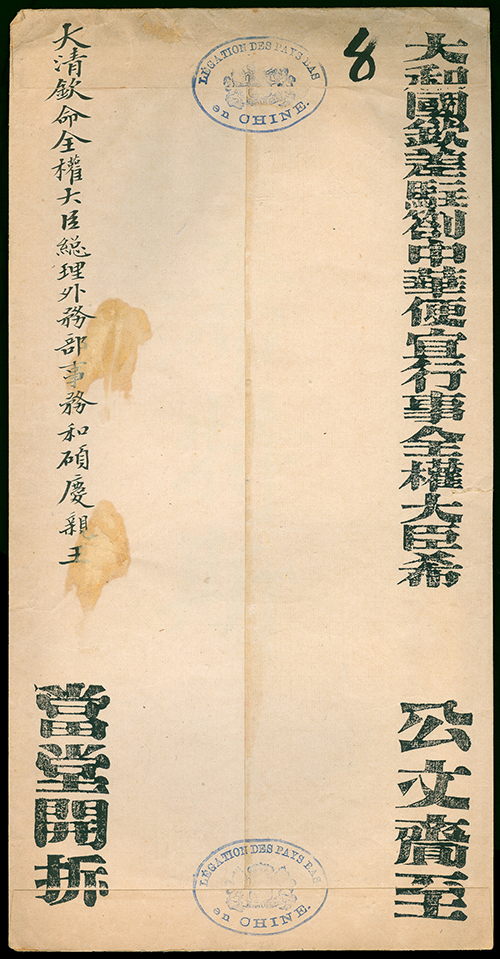 大和國欽差駐劄中華便宜行事全權大臣希
公文齎至
8
LÉGATION DES PAYS BAS
en CHINE.
LÉGATION DES PAYS BAS
en CHINE.
大清欽命全權大臣総理外務部事務和碩慶親王
當堂開折